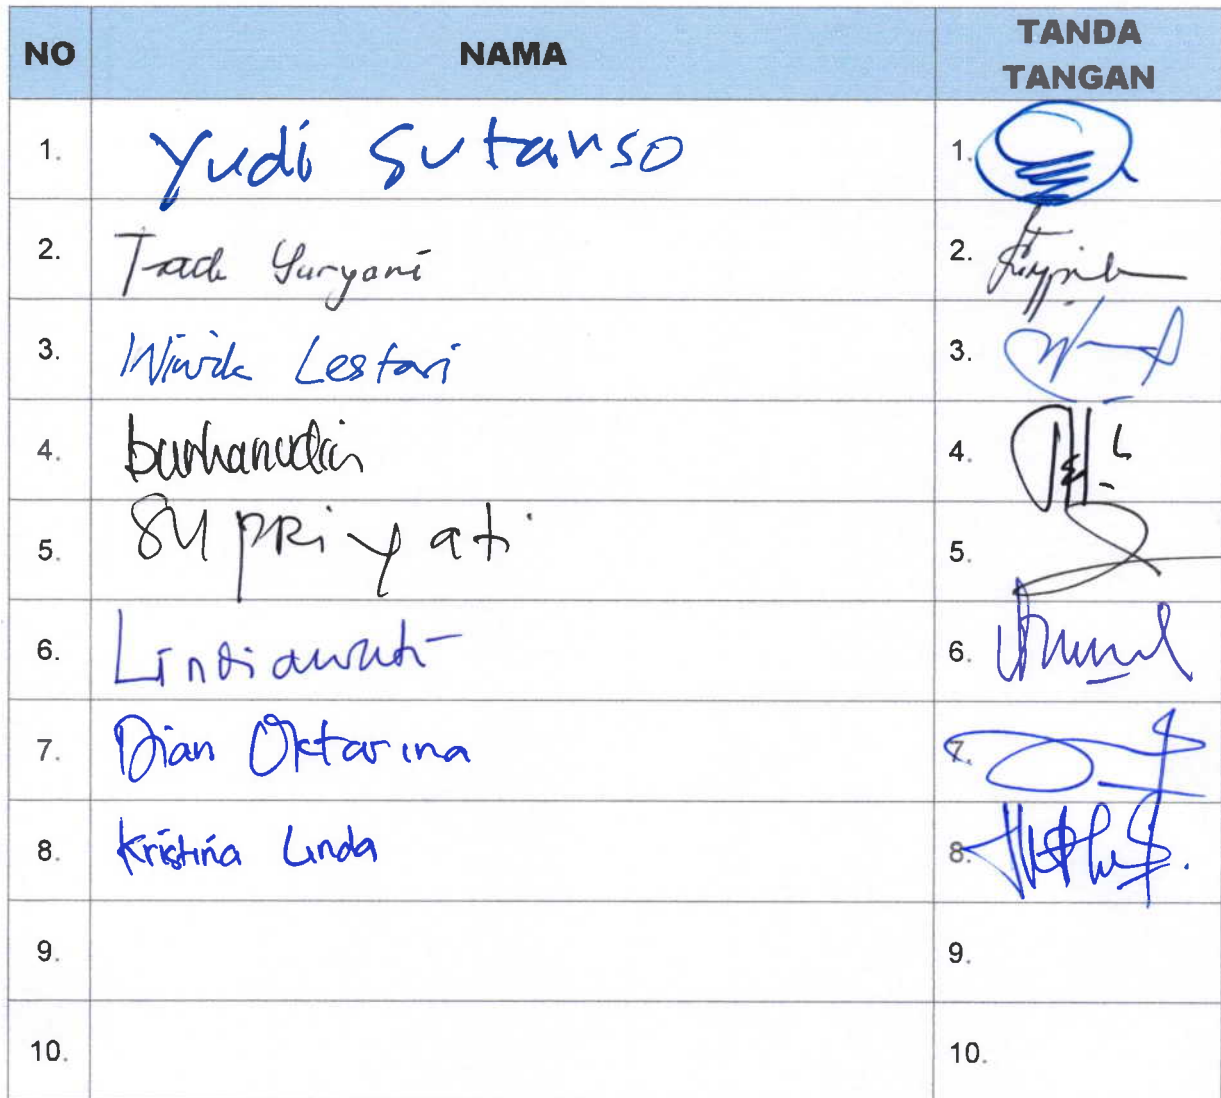 NO NAMA TANDA TANGAN
1. Yudi Sutanso 1.
2. Yuryani 2.
3. Wiwik Lestari 3.
4. burhanudin 4.
5. SUPRiyati 5.
6. Lindiawati 6.
7. Dian Oktarina 7.
8. Kristina Linda 8.
9. 9.
10. 10.